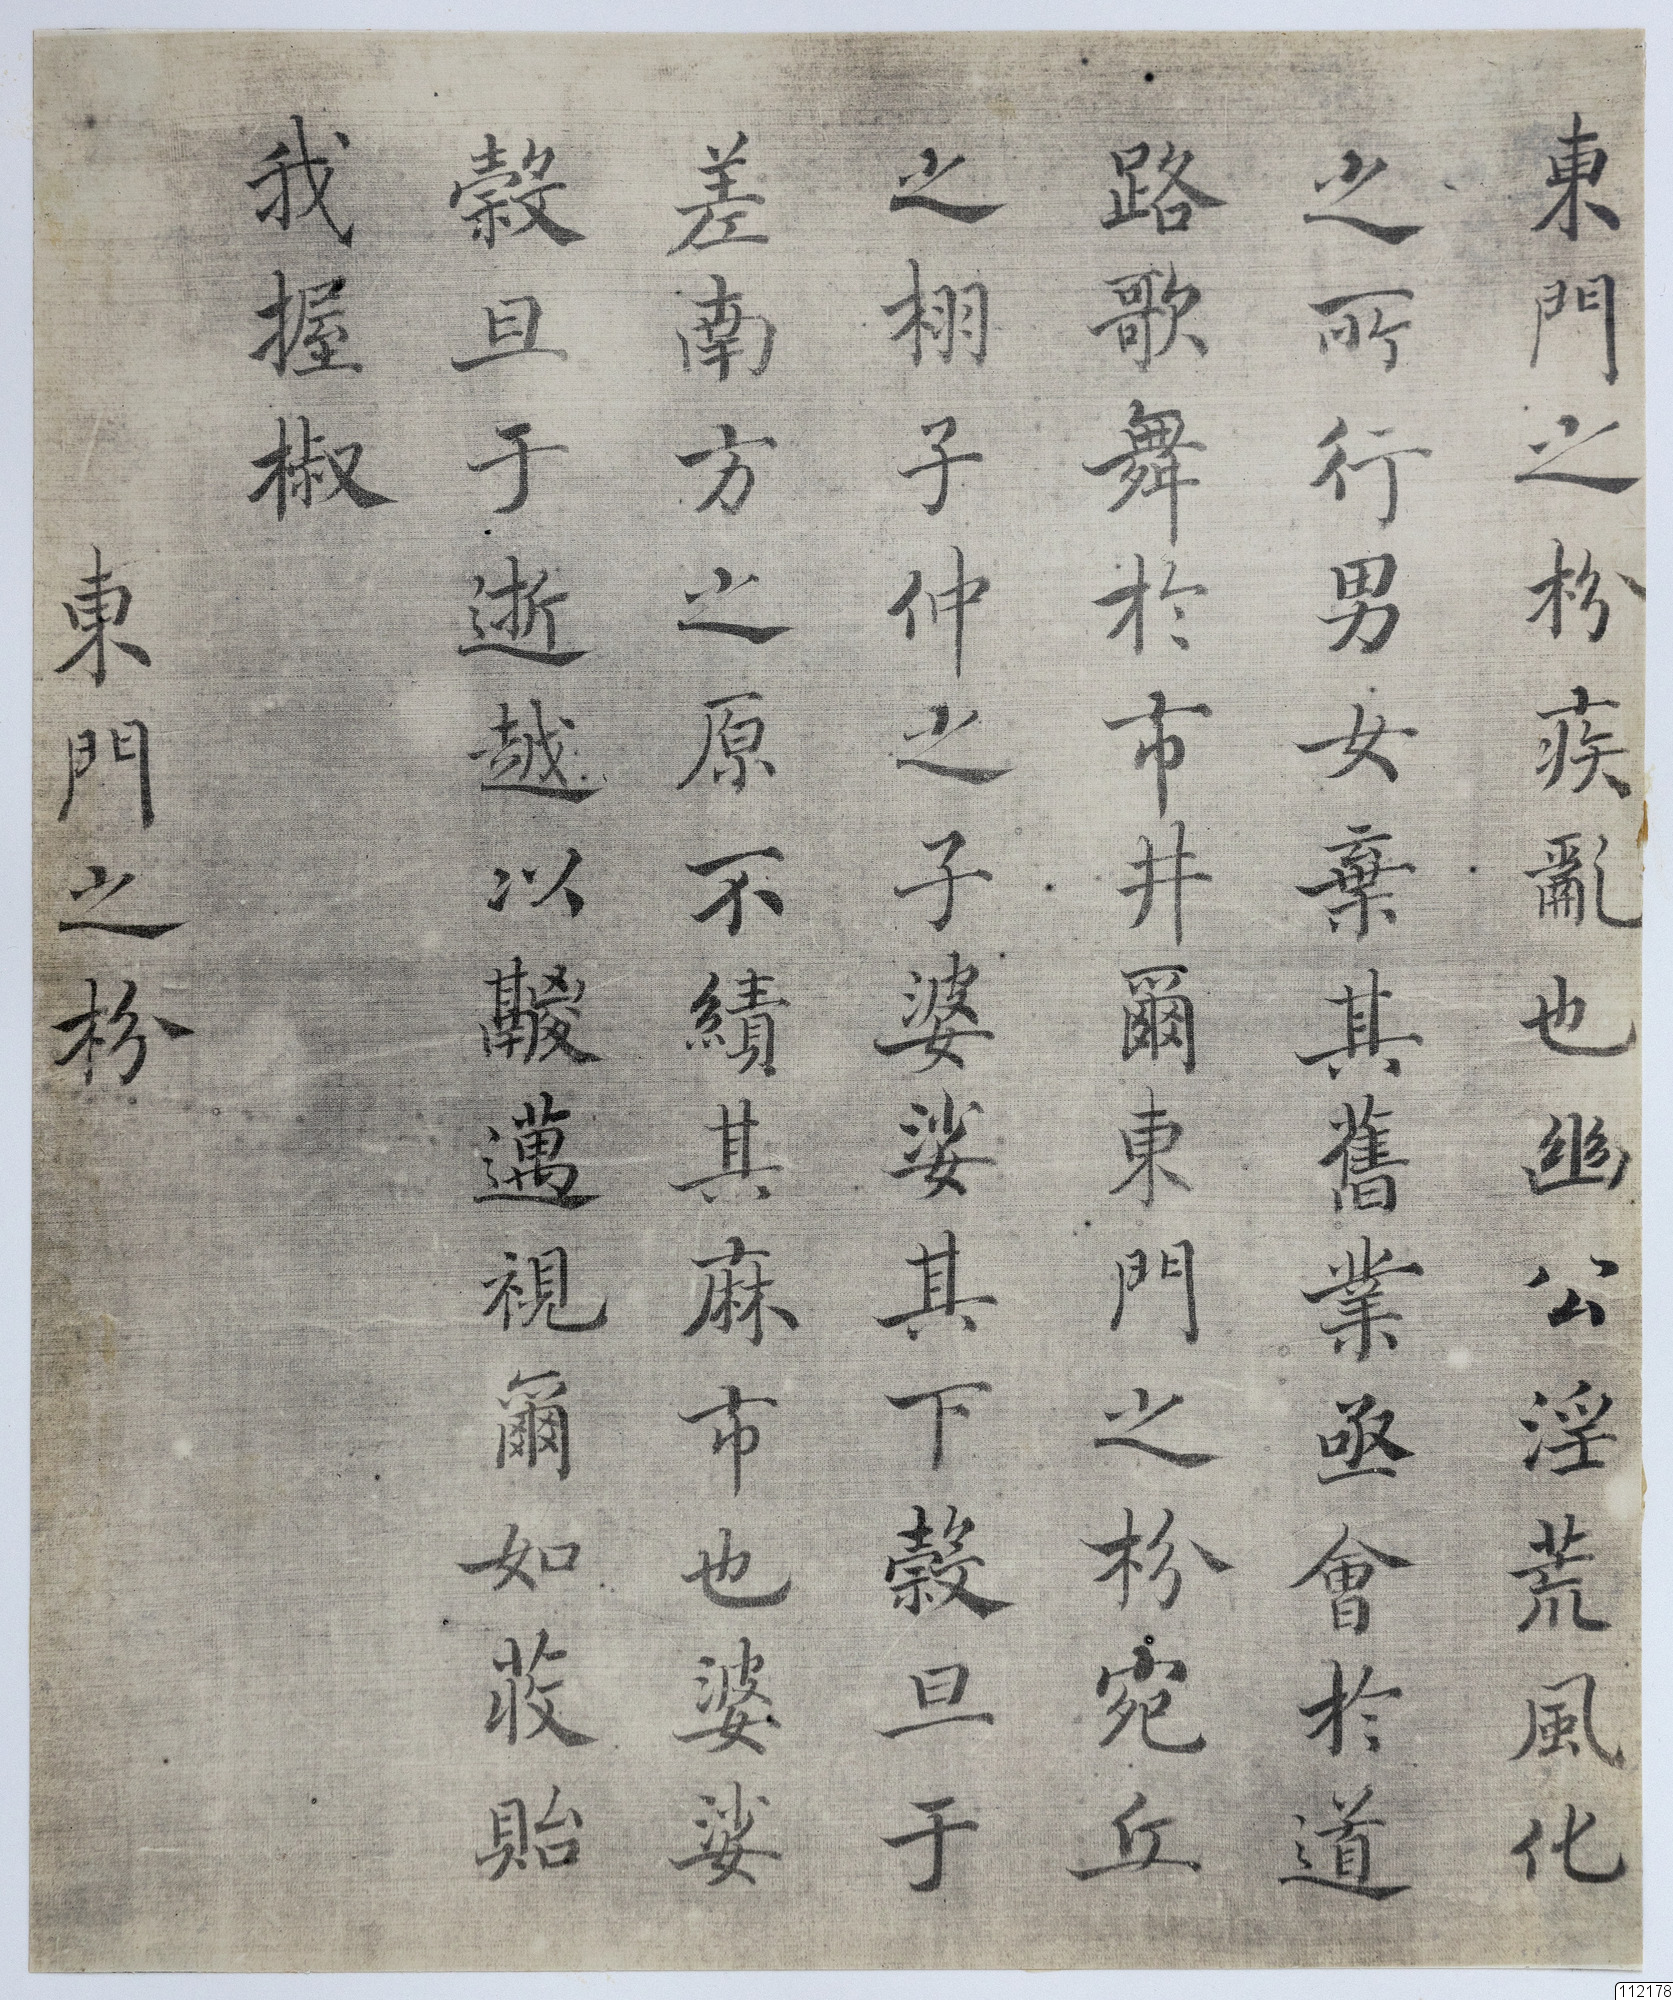 東門之枌疾亂也幽公淫荒風化
之所行男女棄其舊業亟會於道
路歌舞於市井爾東門之枌宛丘
之栩子仲之子婆娑其下穀旦于
差南方之原不績其麻市也婆娑
穀旦于逝越以鬷邁視爾如荍貽
我握椒
東門之枌
112178